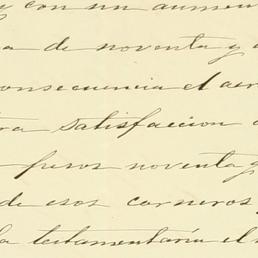 y con un aumen
a de noventa y
onsecuencia el
ra satisfaccion
pesos noventa y
de esos carneros
la testamentaría el